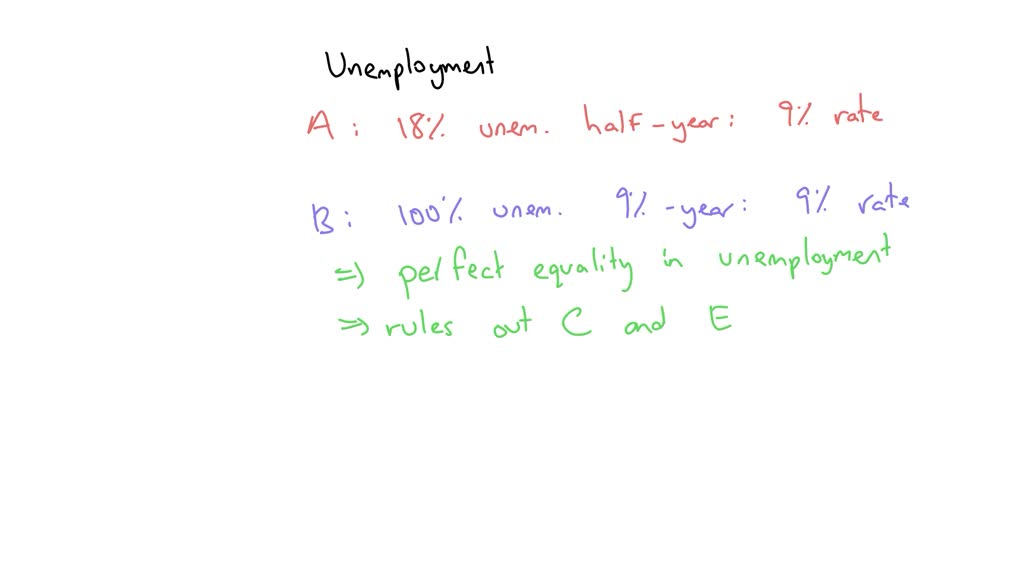 Unemployment
A: 18% unem. half-year: 9% rate
B: 100% unem. 9%-year: 9% rate
=> perfect equality in unemployment
=> rules out C and E